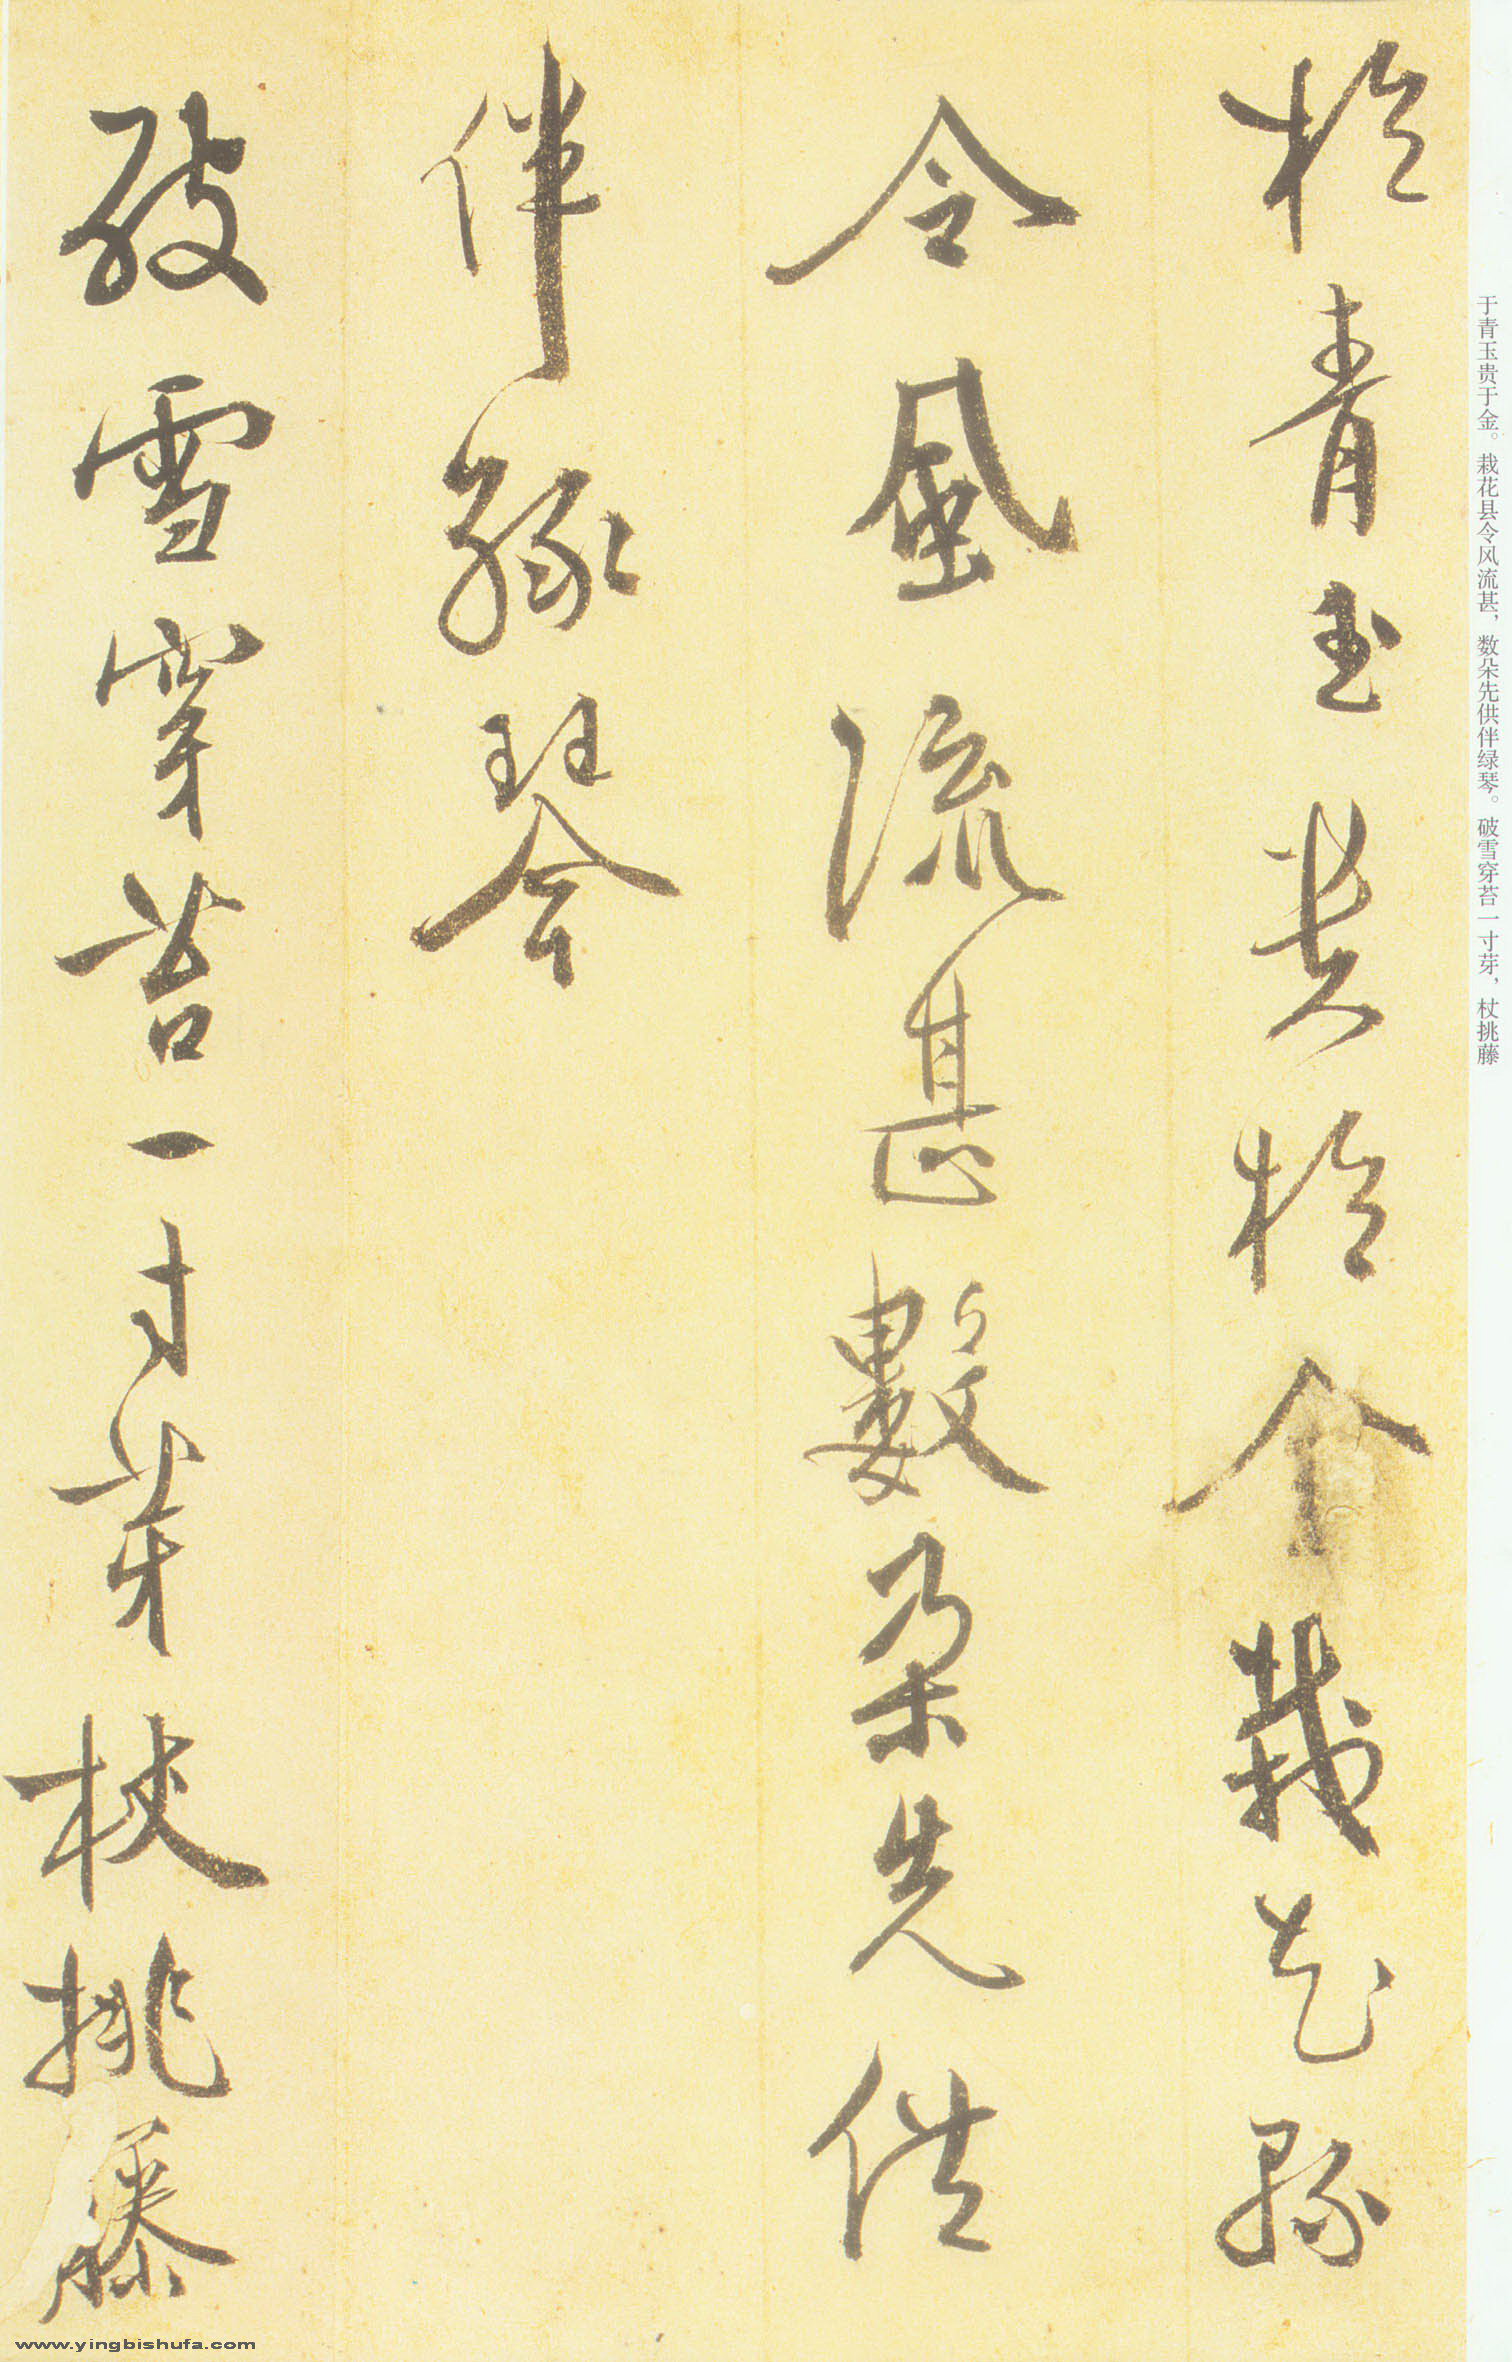 于青玉贵于金。栽花县令风流甚，数朵先供伴绿琴。破雪穿苔一寸芽，杖挑藤
於青玉貴於金栽花縣
令風流甚數朵先供
伴緑琴
破雪穿苔一寸芽杖挑藤
www.yingbishufa.com